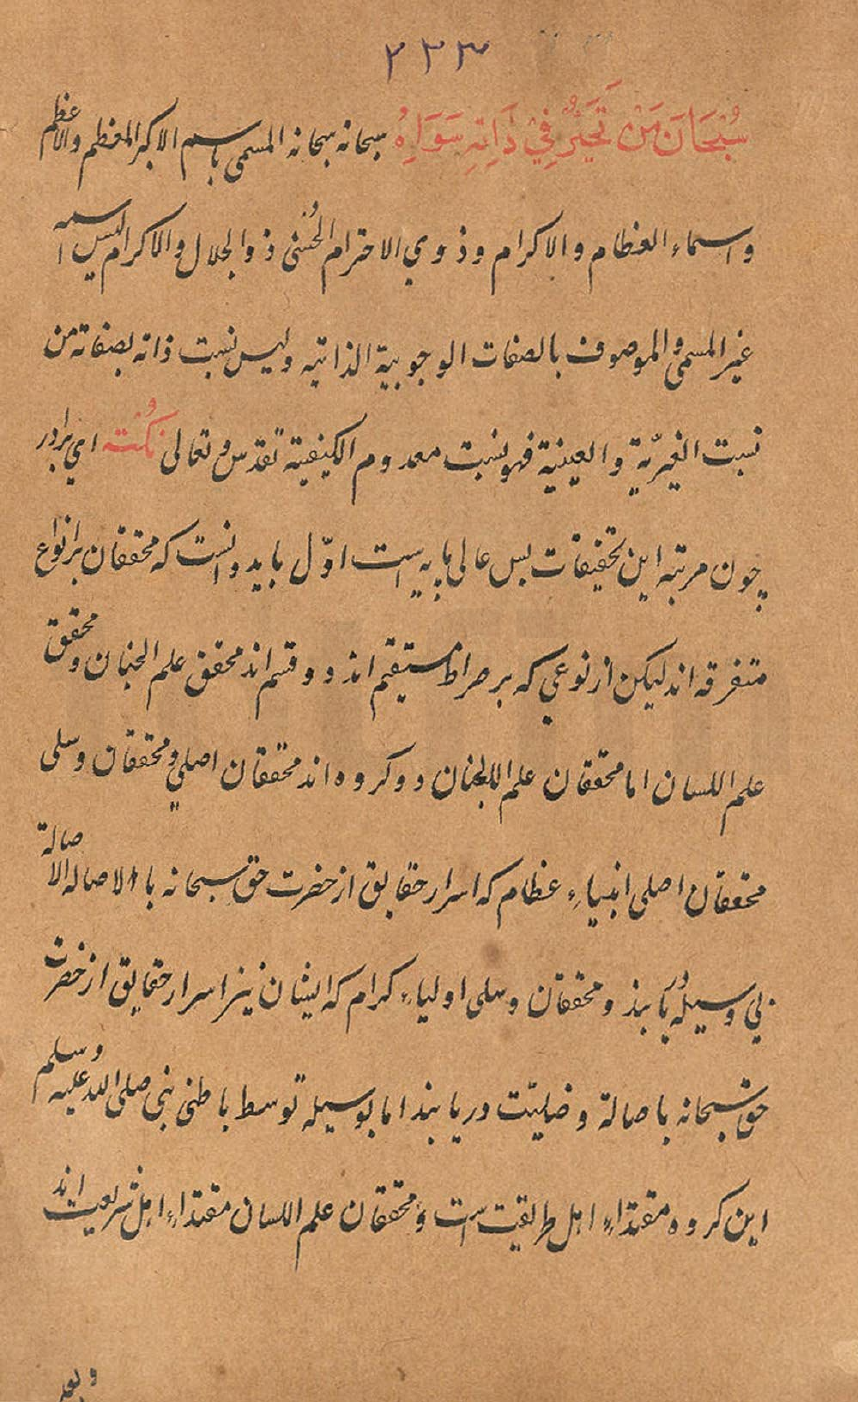 ۲۲۳
سُبْحَانَ مَنْ تَحَيَّرَ فِيْ ذَاتِهِ سَوَاهُ سبحانه سبحانه المسمى باسم الاكبر المعظم والاعظم
واسماء العظام والاكرام وذوي الاحترام الحُسْنى ذوالجلال والاكرام ليس اسمه
غير المسمى والموصوف بالصفات الوجوبية الذاتيه وليس نسبت ذاته بصفاته من
نسبت الغيريّة والعينية فهو نسبت معدوم الكيفية تقدس وتعالى نكته اي برادر
چون مرتبه اين تحقيقات بس عالى پايه است اوّل بايد دانست كه محققان بر انواع
متفرقه اند ليكن از نوعي كه بر صراط مستقيم اند دو قسم اند محقق علم الجنان ومحقق
علم اللسان اما محققان علم الجنان دو كروه اند محققان اصلي ومحققان وسلى
محققان اصلى انبياء عظام كه اسرار حقايق از حضرت حق سبحانه با الاصاله الاصالة
بي وسيله دريابند ومحققان وسلى اولياء كرام كه ايشان نيز اسرار حقايق از حضرت
حق سبحانه باصالة و ضليّت دريابند اما بوسيله توسط باطنى نبى صلى الله عليه وسلم
اين كروه مقتداء اهل طريقت است ومحققان علم اللسان مقتداء اهل شريعت اند